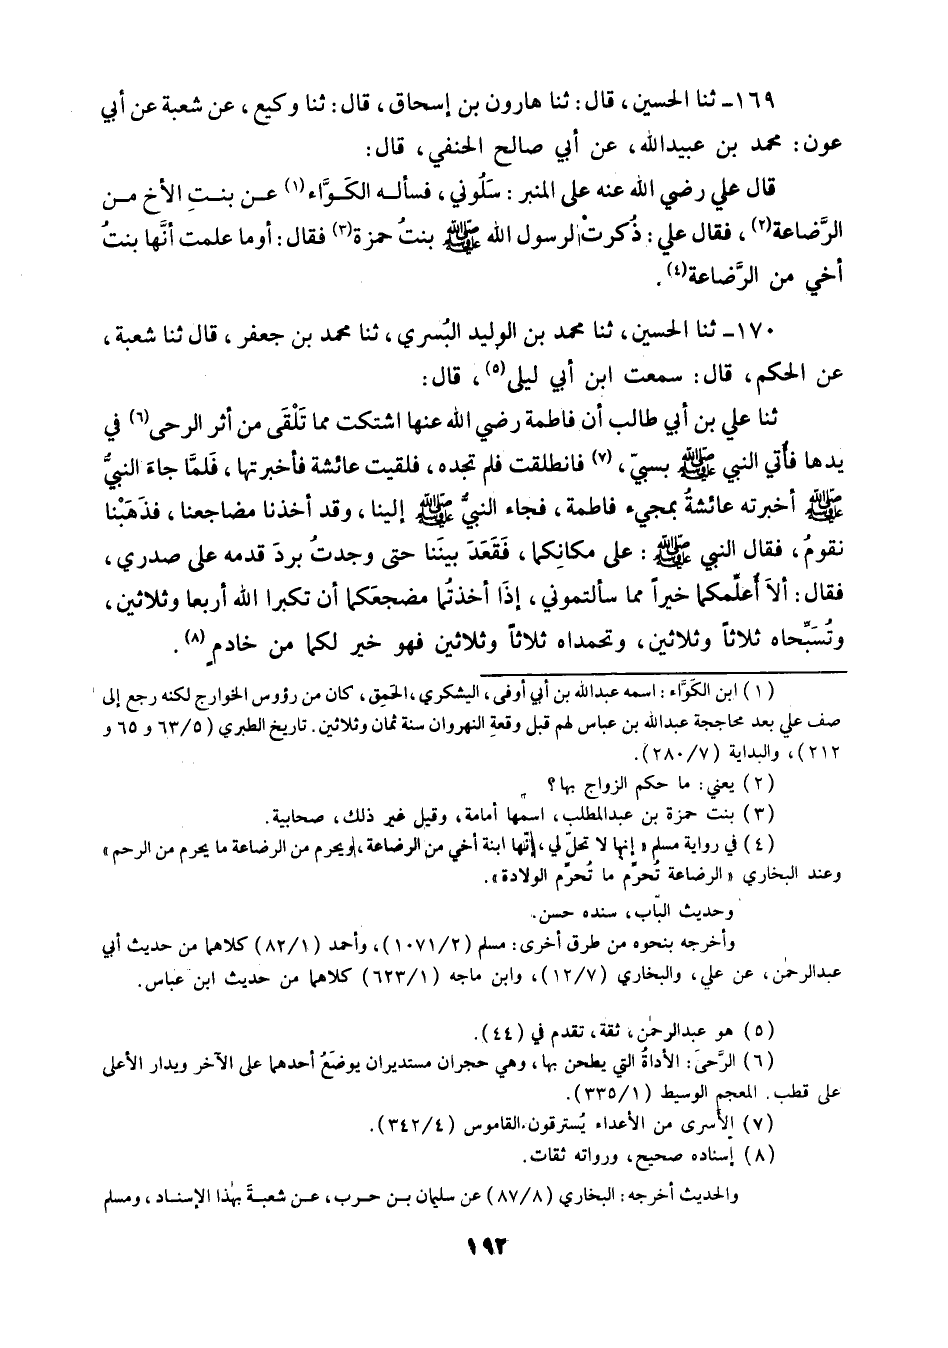 ١٦٩ــ ثنا الحسين، قال: ثنا هارون بن إسحاق، قال: ثنا وكيع، عن شعبة عن أبي
عون: محمد بن عبيدالله، عن أبي صالح الحنفي، قال:
قال علي رضي الله عنه على المنبر: سَلُوني، فسألـه الكَـوَّاء(١) عـن بنـتِ الأخ مـن
الرَّضاعة(٢)، فقال علي: ذُكرتْ لرسول الله ﷺ بنتُ حمزة(٣) فقال: أوما علمت أنَّها بنتُ
أخي من الرَّضاعة(٤).
١٧٠ــ ثنا الحسين، ثنا محمد بن الوليد البُسري، ثنا محمد بن جعفر، قال ثنا شعبة،
عن الحكم، قال: سمعت ابن أبي ليلى(٥)، قال:
ثنا علي بن أبي طالب أن فاطمة رضي الله عنها اشتكت مما تَلْقَى من أثر الرحى(٦) في
يدها فأُتي النبي ﷺ بسبيّ،(٧) فانطلقت فلم تجده، فلقيت عائشة فأخبرتها، فَلمَّا جاءَ النبيُّ
ﷺ أخبرته عائشةُ بمجيء فاطمة، فجاء النبيُّ ﷺ إلينا، وقد أخذنا مضاجعنا، فذَهَبْنا
نقومُ، فقال النبي ﷺ: على مكانِكما، فَقَعَدَ بيَننا حتى وجدتُ بردَ قدمه على صدري،
فقال: ألاَ أُعلِّمكما خيراً مما سألتموني، إذَا أخذتُما مضجعَكما أن تكبرا الله أربعا وثلاثين،
وتُسَبِّحاه ثلاثاً وثلاثين، وتحمداه ثلاثاً وثلاثين فهو خير لكما من خادمٍ(٨).
(١) ابن الكَوَّاء: اسمه عبدالله بن أبي أوفى، اليشكري، الحَمِق، كان من رؤوس الخوارج لكنه رجع إلى
صف علي بعد محاججة عبدالله بن عباس لهم قبل وقعةِ النهروان سنة ثمان وثلاثين. تاريخ الطبري (٦٣/٥ و ٦٥ و
٢١٢)، والبداية (٢٨٠/٧).
(٢) يعني: ما حكم الزواج بها؟
(٣) بنت حمزة بن عبدالمطلب، اسمها أمامة، وقيل غير ذلك، صحابية.
(٤) في رواية مسلم «إنها لا تحلّ لي، إنّها ابنة أخي من الرضاعة، ويحرم من الرضاعة ما يحرم من الرحم»
وعند البخاري «الرضاعة تُحرِّم ما تُحرِّم الولادة».
وحديث البَّاب، سنده حسن.
وأخرجه بنحوه من طرق أخرى: مسلم (١٠٧١/٢)، وأحمد (٨٢/١) كلاهما من حديث أبي
عبدالرحمٰن، عن علي، والبخاري (١٢/٧)، وابن ماجه (٦٢٣/١) كلاهما من حديث ابن عباس.
(٥) هو عبدالرحمٰن، ثقة، تقدم في (٤٤).
(٦) الرَّحىَ: الأداةُ التي يطحن بها، وهي حجران مستديران يوضَعُ أحدهما على الآخر ويدار الأعلى
على قطب. المعجم الوسيط (٣٣٥/١).
(٧) الأسرى من الأعداء يُسترقون. القاموس (٣٤٢/٤).
(٨) إسناده صحيح، ورواته ثقات.
والحديث أخرجه: البخاري (٨٧/٨) عن سليمان بـن حـرب، عـن شعبـةَ بهٰذا الإسنـاد، ومسلم
١٩٢